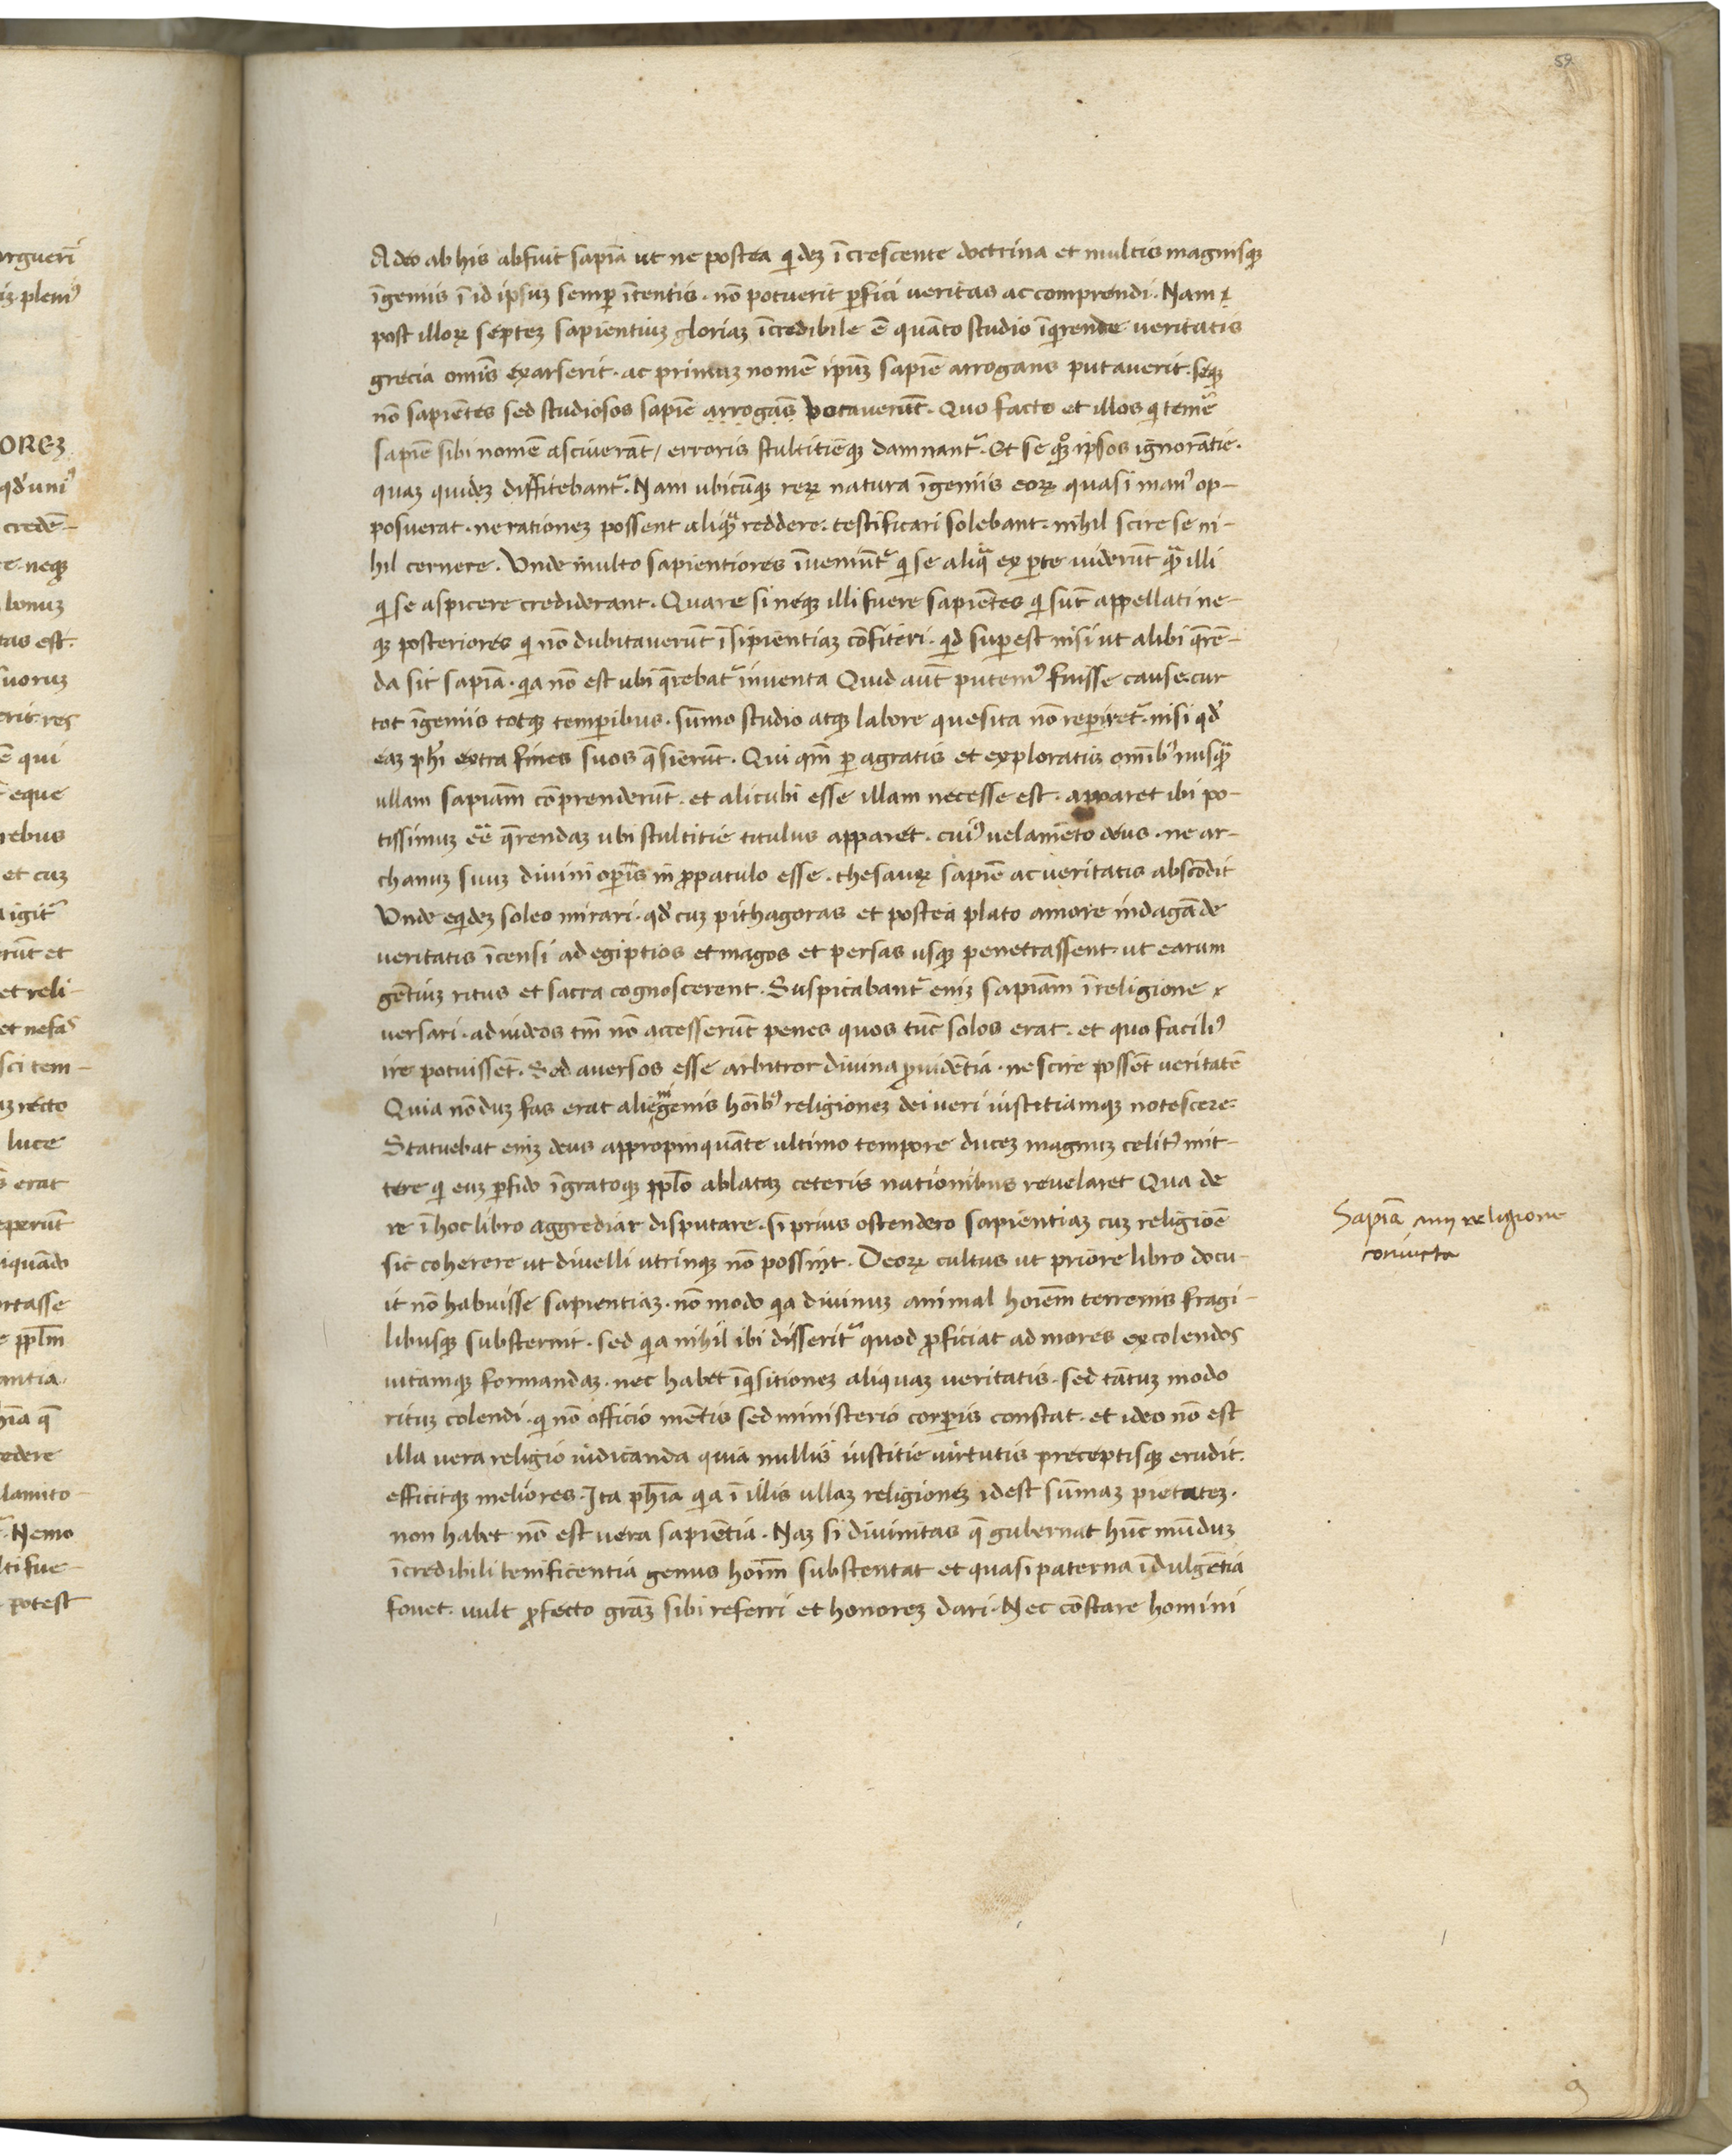 59
Adeo ab his abfuit sapiã ut ne postea qidez ĩcrescente doctrina et multis magnisqꝫ
ĩgeniis ĩ id ipsuz semꝑ ĩtentis · nõ potuerit ꝑfici veritas ac comprendi · Nam ⁊
post illoꝝ septez sapientiuz gloriaz ĩcredibile ẽ quãto studio ĩqrende veritatis
grecia omĩs exarserit · ac primuz nomẽ ipũz sapiẽ arrogans putaverit · seqꝫ
nõ sapiẽtes sed studiosos sapiẽ arrogãs votaverũt · Quo facto et illos qi temẽ
sapiẽ sibi nomẽ asciverãt / erroris stultitiẽqꝫ damnant᷑ · Et se qꝫ ipsos ignorãtie ·
quaz quidez diffitebant᷑ · Nam ubicũqꝫ reꝝ natura ĩgeniis eoꝝ quasi man᷒ op-
posuerat · ne rationez possent aliqͣ reddere · testificari solebant · nihil scire se ni-
hil cernere · Unde multo sapientiores ĩveniũt᷑ qi se aliqͣ ex ꝑte viderũt qͣ illi
qi se aspicere crediderant · Quare si neqꝫ illi fuere sapiẽtes qi sũt appellati ne-
qꝫ posteriores qi nõ dubitaverũt ĩsipientiaz cõfiteri · qd suꝑest nisi ut alibi q̃rẽ-
da sit sapiã · qia nõ est ubi q̃rebat᷑ inventa Quid aũt putem᷒ fuisse cause · cur
tot ĩgeniis totqꝫ temꝑibus · sũmo studio atqꝫ labore quesita nõ reperiret᷑ · nisi qd᷒
eaz phĩ extra fines suos q̃sierũt · Qui qm̃ ꝑagratis et exploratis omĩb᷒ nusqͣ
ullam sapiãm cõprenderũt · et alicubi esse illam necesse est · apparet ibi po-
tissimuz eẽ q̃rendaz ubi stultitie titulus apparet · cui᷒ velamẽto deus · ne ar-
chanuz suuz divini oꝑis in ꝓpatulo esse · thesauꝝ sapiẽ ac veritatis abscõdit
Unde eqidez soleo mirari · qd᷒ cuz pithagoras et postea plato amore indagãde
veritatis ĩcensi ad egiptios et magos et persas usqꝫ penetrassent · ut earum
gẽtiuz ritus et sacra cognoscerent · Suspicabant᷑ eniz sapiãm ĩ religione ⁊
versari · ad iudeos tm̃ nõ accesserũt penes quos tũc solos erat · et quo facili᷒
ire potuissẽt · Sed aversos esse arbitror divina ꝓvidẽtia · ne scire possẽt veritatẽ
Quia nõduz fas erat alienigenis hoĩb᷒ religionez dei veri iustitiamqꝫ notescere ·
Statuebat eniz deus appropinquãte ultimo tempore ducez magnuz celit᷒ mit-
tere qi eaz ꝑfido ĩgratoqꝫ ppl̃o ablataz ceteris nationibus revelaret Qua de
re ĩ hoc libro aggrediar disputare · si prius ostendero sapientiaz cuz religiõe
sic coherere ut divelli utrinqꝫ nõ possint · Deoꝝ cultus ut priore libro docu-
it nõ habuisse sapientiaz · nõ modo qia divinuz animal hoĩem terrenis fragi-
libusqꝫ substernit · sed qia nihil ibi disserit᷑ quod ꝓficiat ad mores excolendos
vitamqꝫ formandaz · nec habet ĩqisitionez aliquaz veritatis · sed tãtuz modo
rituz colendi · qi nõ officio mẽtis sed ministerio corꝑis constat · et ideo nõ est
illa vera religio iudicanda quia nullis iustitie virtutis preceptisqꝫ erudit ·
efficitqꝫ meliores · Ita phĩa qia ĩ illis ullaz religionez idest sũmaz pietatez ·
non habet nõ est vera sapiẽtia · Naz si divinitas q̃ gubernat hũc mũduz
ĩcredibili benificentia genus hoĩm substentat et quasi paterna ĩdulgẽtia
fovet · vult ꝓfecto grãz sibi referri et honorez dari · Nec cõstare homini
Sapiã cum religione
coniucta